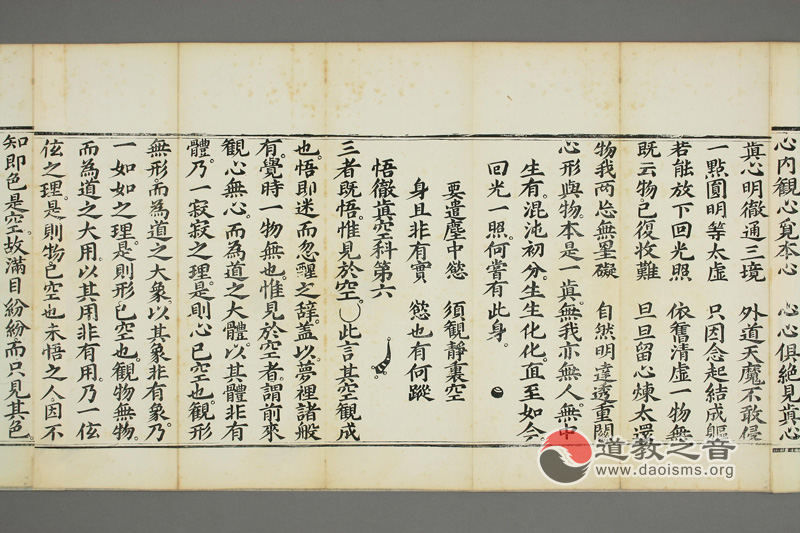 心內觀心覓本心　心心俱絕見眞心
眞心明徹通三境　外道天魔不敢侵
一點圓明等太虛　只因念起結成軀
若能放下回光照　依舊清虛一物無
既云物已復收難　旦旦留心煉太還
物我两忘無罣礙　自然明達透重關
心形與物本是一眞無我亦無人無中
生有混沌初分生生化化直至如今
回光一照何嘗有此身
要遣塵中慾　須觀靜裏空
身且非有實　慾也有何蹤
悟徹眞空科第六
三者既悟惟見於空〇此言其空觀成
也悟即迷而忽醒之辭蓋以夢裡諸般
有覺時一物無也惟見於空者謂前來
觀心無心而為道之大體以其體非有
體乃一寂寂之理是則心已空也觀形
無形而為道之大象以其象非有象乃
一如如之理是則形已空也觀物無物
而為道之大用以其用非有用乃一伭
伭之理是則物已空也未悟之人因不
知即色是空故滿目紛紛而只見其色
道教之音
www.daoisms.org